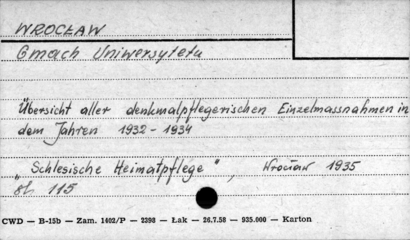 WROCŁAW
Gmach Uniwersytetu
Übersicht aller denkmalpflegerischen Einzelmassnahmen in
dem Jahren 1932 - 1934
"Schlesische Heimatpflege", Wrocław 1935
115
CWD — B-15b — Zam. 1402/P — 2398 — Łak — 26.7.58 — 935.000 — Karton